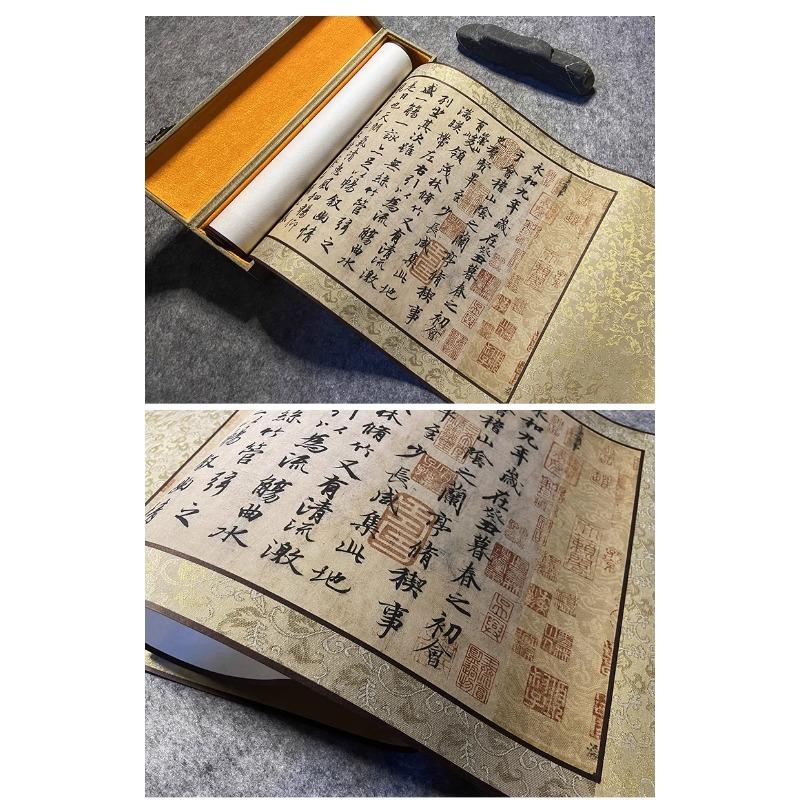 永和九年歲在癸丑暮春之初會
于會稽山陰之蘭亭脩稧事
也羣賢畢至少長咸集此地
有崇山峻領茂林脩竹又有清流激
湍暎帶左右引以為流觴曲水
列坐其次雖無絲竹管弦之
盛一觴一詠亦足以暢敘幽情
是日也天朗氣清惠風和暢仰
永和九年歲在癸丑暮春之初會
會稽山陰之蘭亭脩稧事
畢至少長咸集此地
林脩竹又有清流激
引以為流觴曲水
絲竹管弦之
暢敘幽情